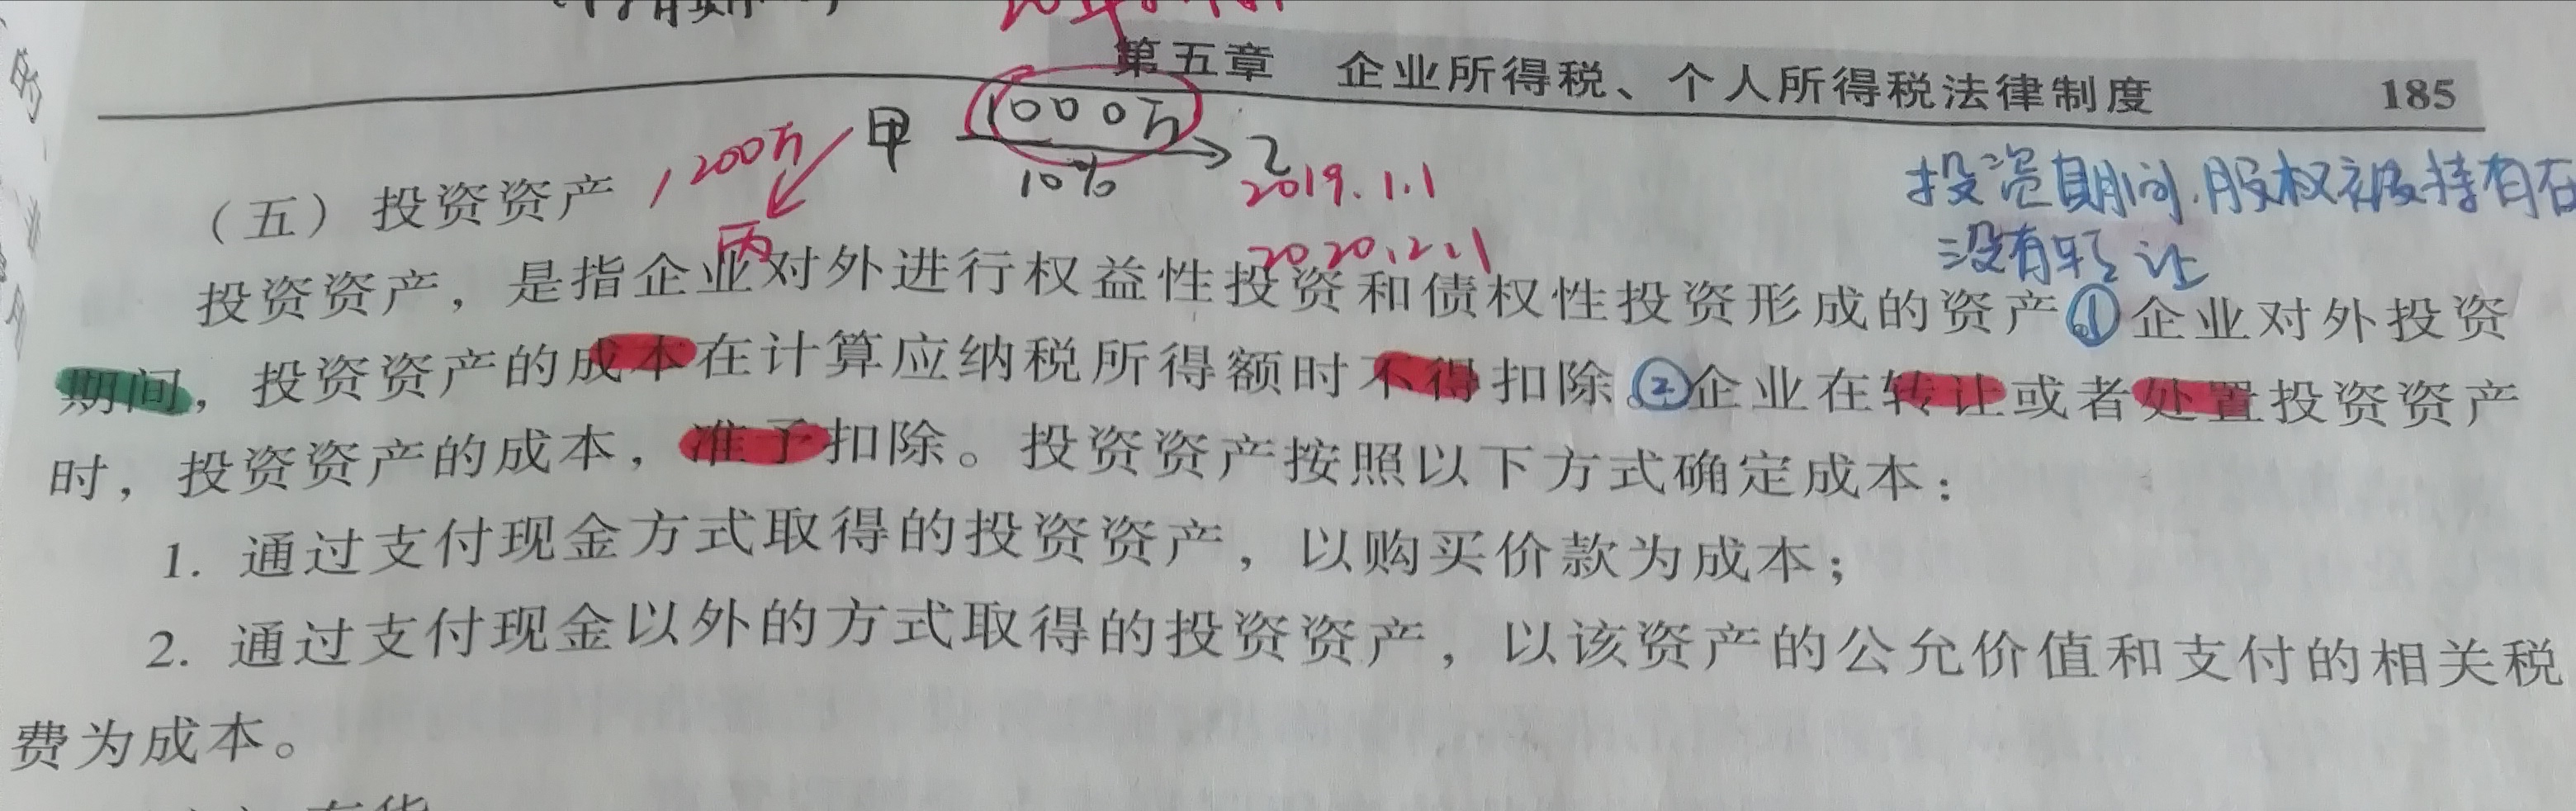 第五章 企业所得税、个人所得税法律制度 185
甲 1000万 乙
10%
1200万
丙
2019.1.1
2020.12.1
投资期间,股权被持有在
没有转让
(五)投资资产
投资资产,是指企业对外进行权益性投资和债权性投资形成的资产①企业对外投资
期间,投资资产的成本在计算应纳税所得额时不得扣除。②企业在转让或者处置投资资产
时,投资资产的成本,准予扣除。投资资产按照以下方式确定成本:
1. 通过支付现金方式取得的投资资产,以购买价款为成本;
2. 通过支付现金以外的方式取得的投资资产,以该资产的公允价值和支付的相关税
费为成本。